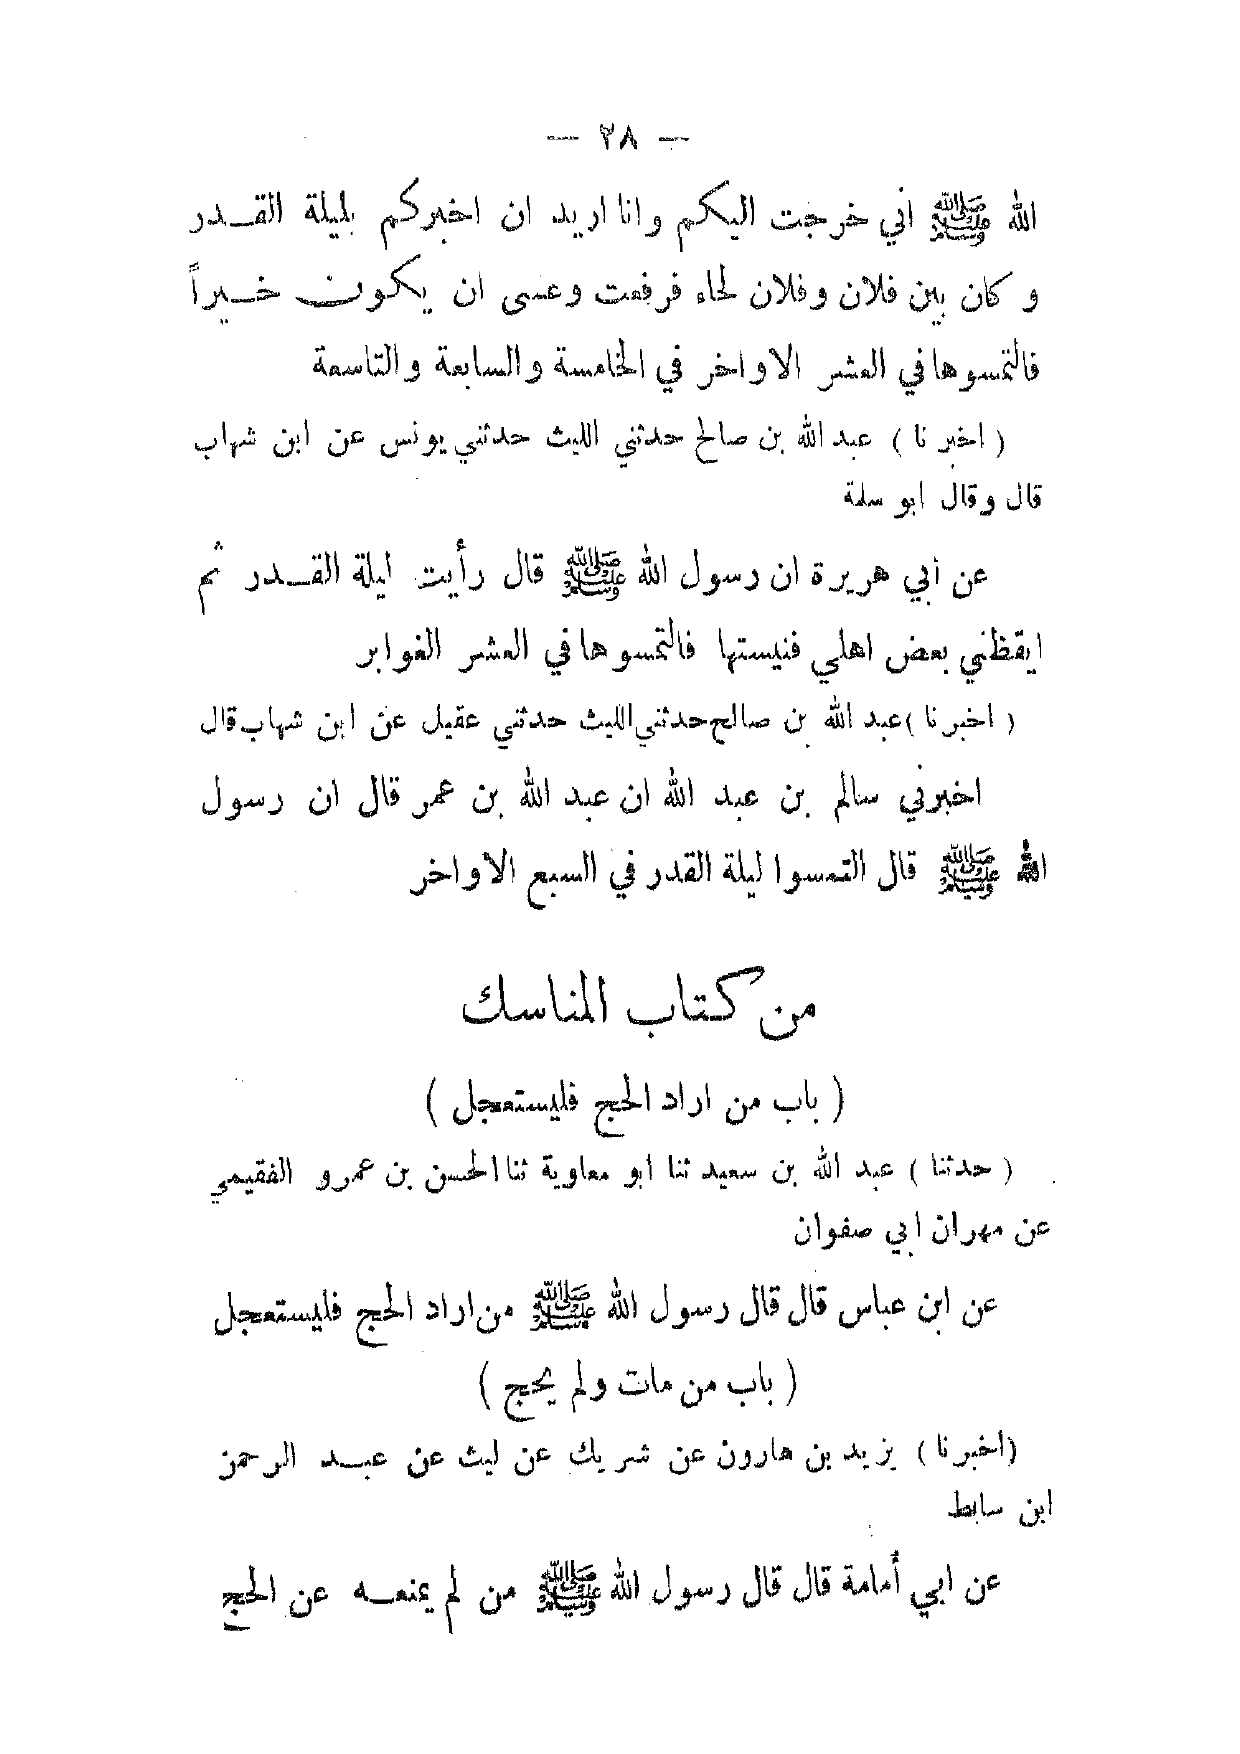 — ٢٨ —
الله ﷺ اني خرجت اليكم وانا اريد ان اخبركم بليلة القـدر
و كان بين فلان وفلان لحاء فرفعت وعسى ان يكون خـيراً
فالتمسوها في العشر الاواخر في الخامسة والسابعة والتاسعة
( اخبر نا ) عبد الله بن صالح حدثني الليث حدثني يونس عن ابن شهاب
قال وقال ابو سلمة
عن أبي هريرة ان رسول الله ﷺ قال رأيت ليلة القـدر ثم
ايقظني بعض اهلي فنيستها فالتمسوها في العشر الغوابر
( اخبرنا ) عبد الله بن صالح حدثني الليث حدثني عقيل عن ابن شهاب قال
اخبرني سالم بن عبد الله ان عبد الله بن عمر قال ان رسول
الله ﷺ قال التمسوا ليلة القدر في السبع الاواخر
من كتاب المناسك
( باب من اراد الحج فليستعجل )
( حدثنا ) عبد الله بن سعيد ثنا ابو معاوية ثنا الحسن بن عمرو الفقيمي
عن مهران ابي صفوان
عن ابن عباس قال قال رسول الله ﷺ من اراد الحج فليستعجل
( باب من مات ولم يحج )
(اخبرنا ) يزيد بن هارون عن شريك عن ليث عن عبـد الرحمن
ابن سابط
عن ابي أمامة قال قال رسول الله ﷺ من لم يمنعـه عن الحج